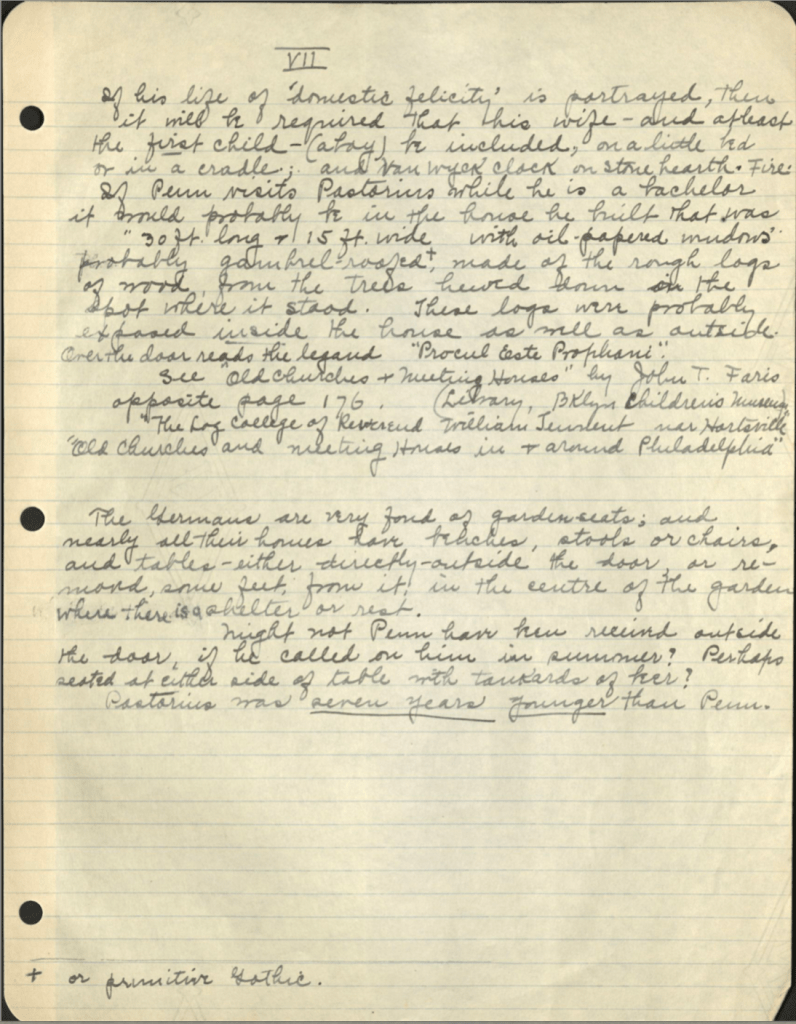 VII
If his life of 'domestic felicity' is portrayed, then
it will be required that his wife - and at least
the first child - (a boy) be included, on a little bed
or in a cradle; and Van Wyck clock on stone hearth. Fire.
If Penn visits Pastorius while he is a bachelor
it would probably be in the house he built that was
"30 ft. long + 15 ft. wide with oil-papered windows"
probably gambrel-roofed+, made of the rough logs
of wood, from the trees hewed down on the
spot where it stood. These logs were probably
exposed inside the house as well as outside.
Over the door reads the legand "Procul Este Prophani".
See "Old Churches + Meeting Houses" by John T. Faris
opposite page 176. (Library, BKlyn Children's Museum)
"The Log College of Reverend William Tennent near Hartsville"
"Old Churches and meeting Houses in + around Philadelphia"
The Germans are very fond of garden-seats; and
nearly all their homes have benches, stools or chairs,
and tables - either directly outside the door, or re-
moved, some feet, from it, in the centre of the garden
where there is a shelter or rest.
Might not Penn have been received outside
the door, if he called on him in summer? Perhaps
seated at either side of table with tankards of beer?
Pastorius was seven years younger than Penn.
+ or primitive Gothic.